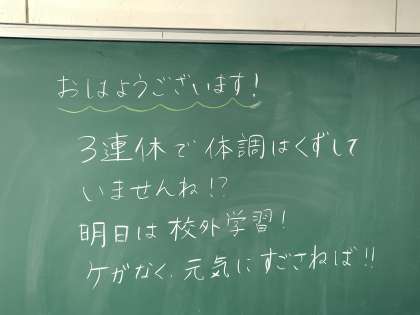 おはようございます!
3連休で体調はくずして
いませんね!?
明日は校外学習!
ケガなく、元気にすごさねば!!